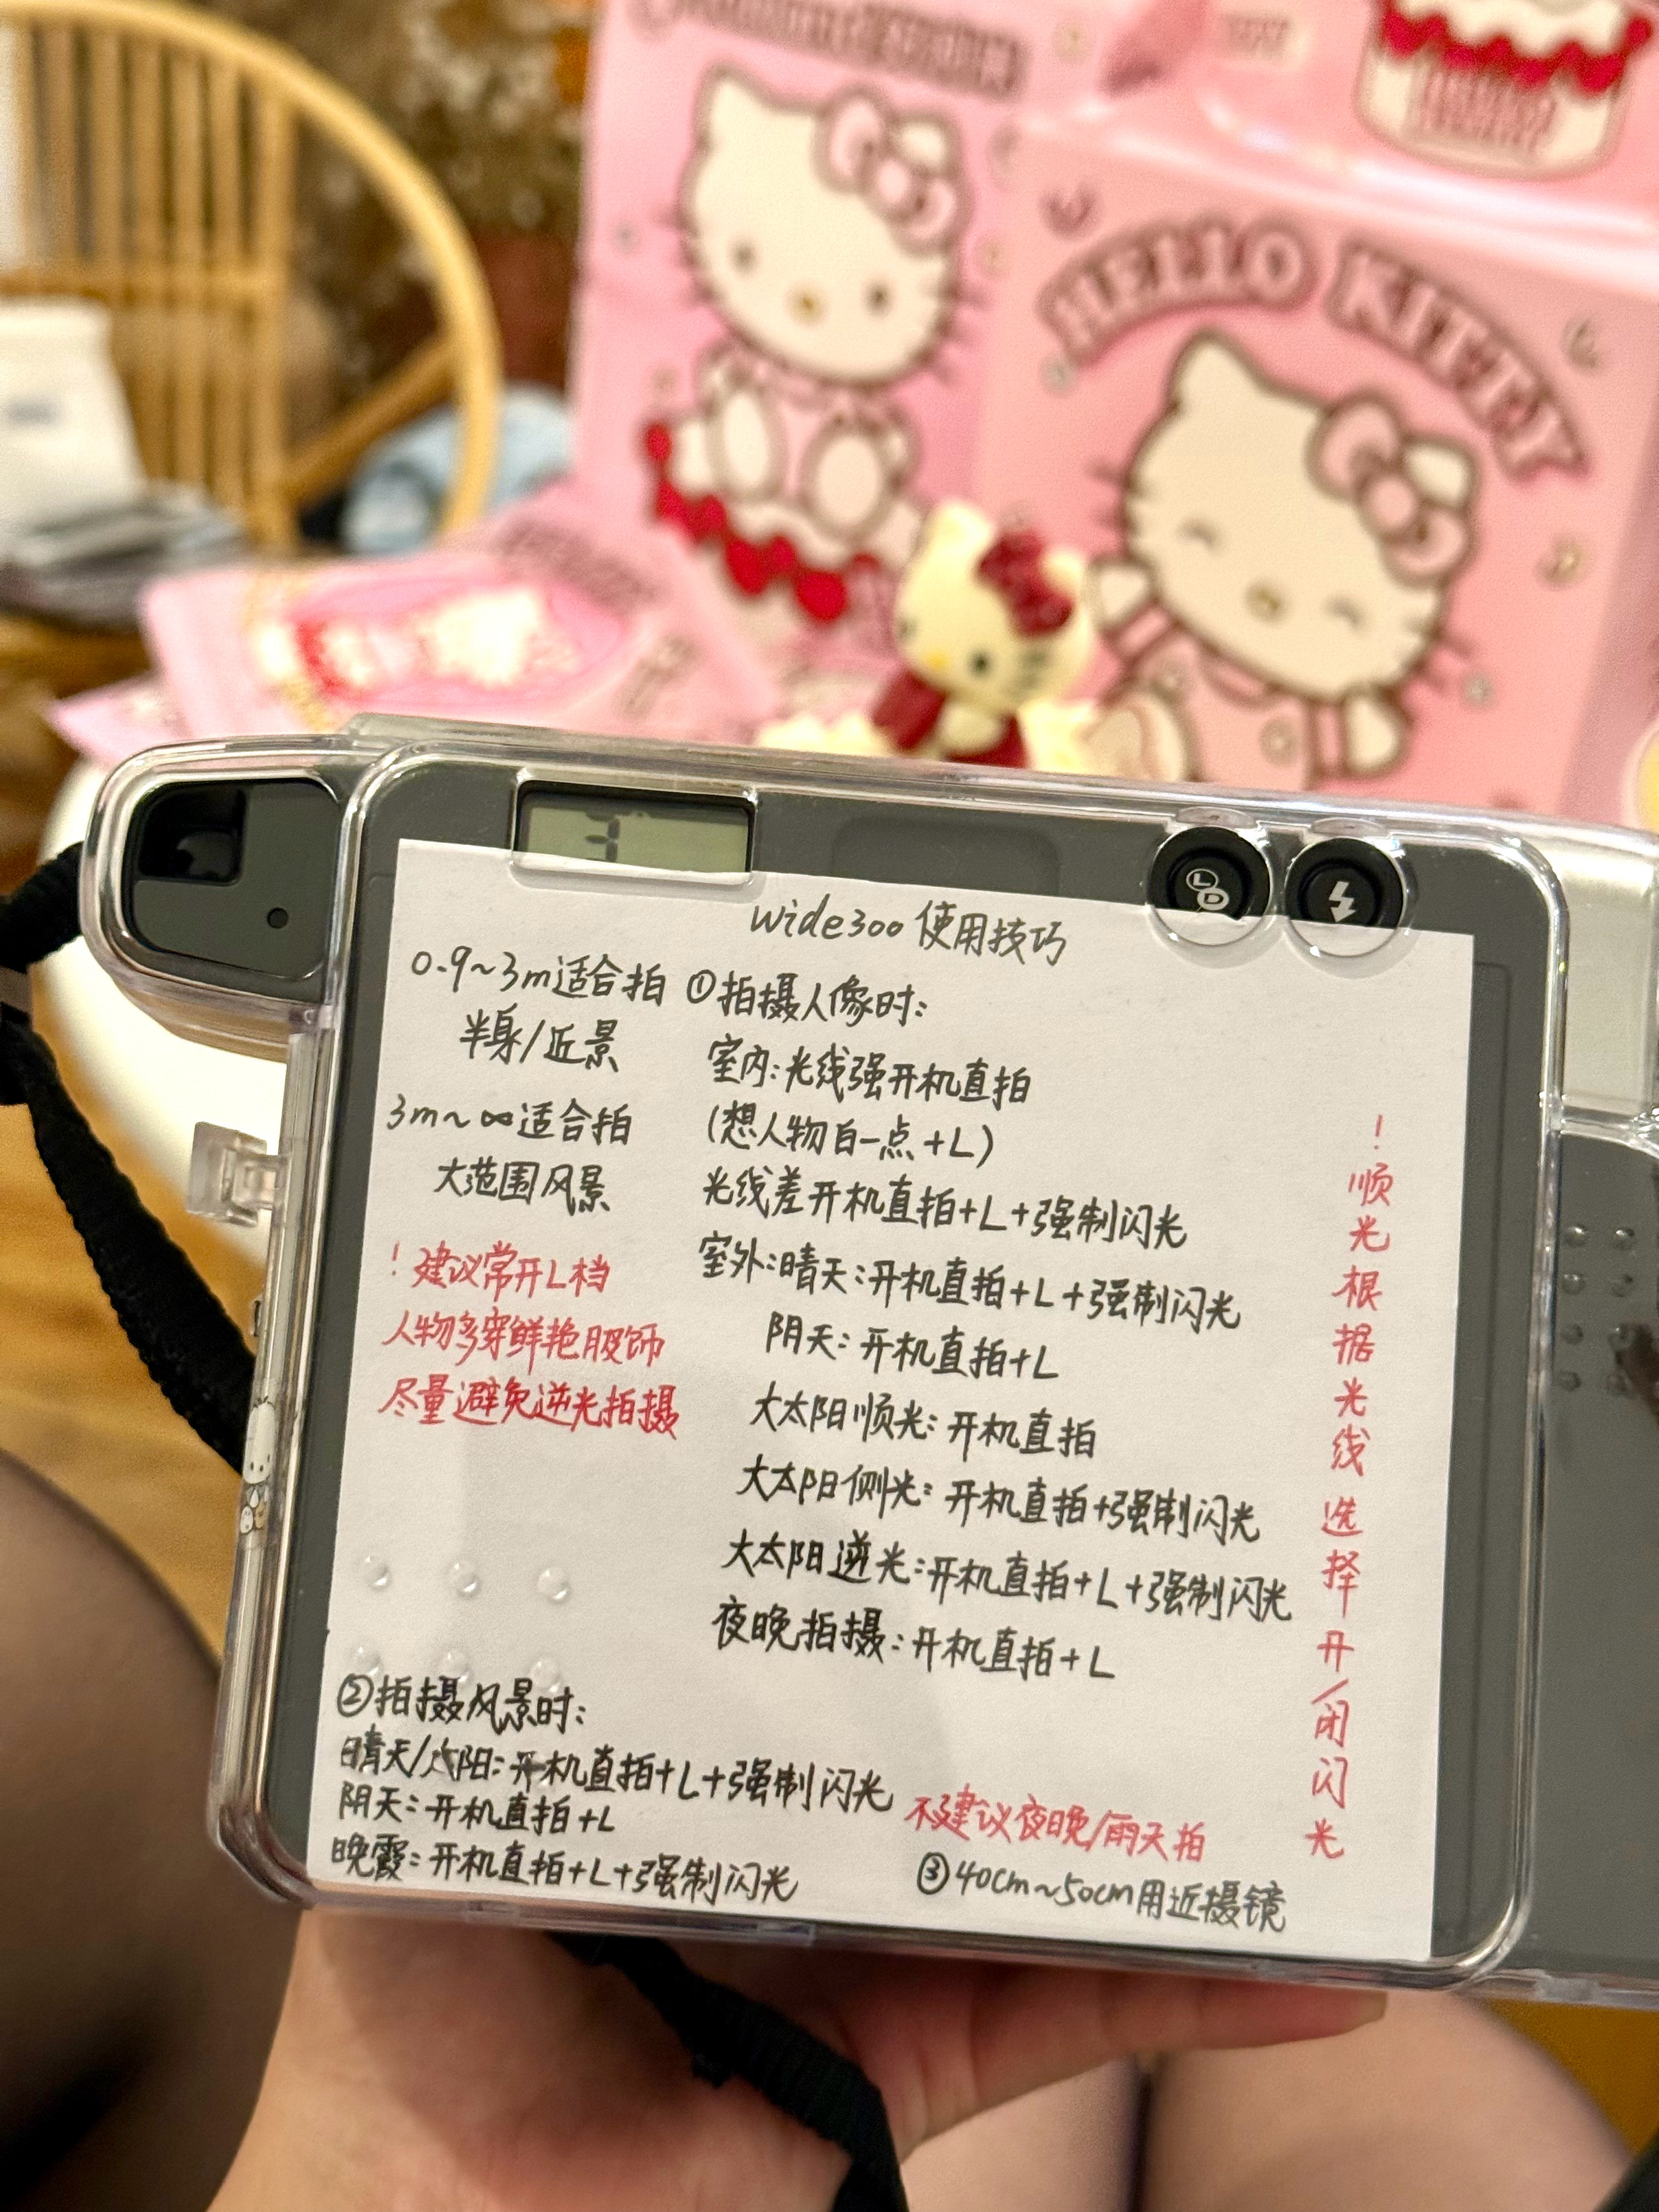 HELLO KITTY
3
L
D
wide300 使用技巧
0.9~3m适合拍
半身/近景
3m~∞适合拍
大范围风景
！建议常开L档
人物多穿鲜艳服饰
尽量避免逆光拍摄
①拍摄人像时：
室内：光线强开机直拍
（想人物白一点+L）
光线差开机直拍+L+强制闪光
室外：晴天：开机直拍+L+强制闪光
阴天：开机直拍+L
大太阳顺光：开机直拍
大太阳侧光：开机直拍+强制闪光
大太阳逆光：开机直拍+L+强制闪光
夜晚拍摄：开机直拍+L
！顺光根据光线选择开/闭闪光
②拍摄风景时：
晴天/太阳：开机直拍+L+强制闪光
阴天：开机直拍+L
晚霞：开机直拍+L+强制闪光
不建议夜晚/雨天拍
③40cm~50cm用近摄镜